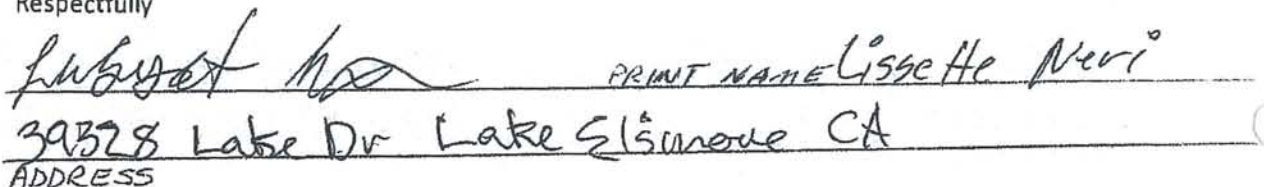 Respectfully
PRINT NAME Lissette Neri
39328 Lake Dr Lake Elsinore CA
ADDRESS